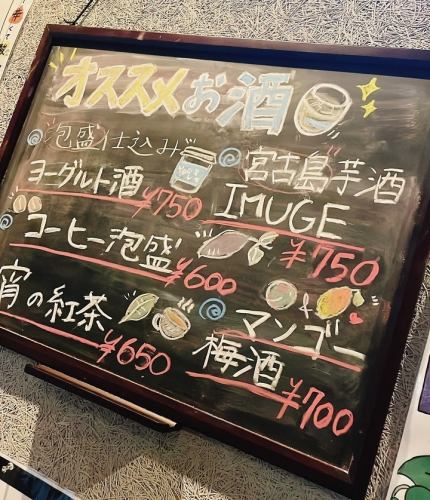 オススメお酒
泡盛仕込み
ヨーグルト酒
¥750
コーヒー泡盛
¥600
宵の紅茶
¥650
宮古島芋酒
IMUGE
¥750
マンゴー
梅酒
¥700